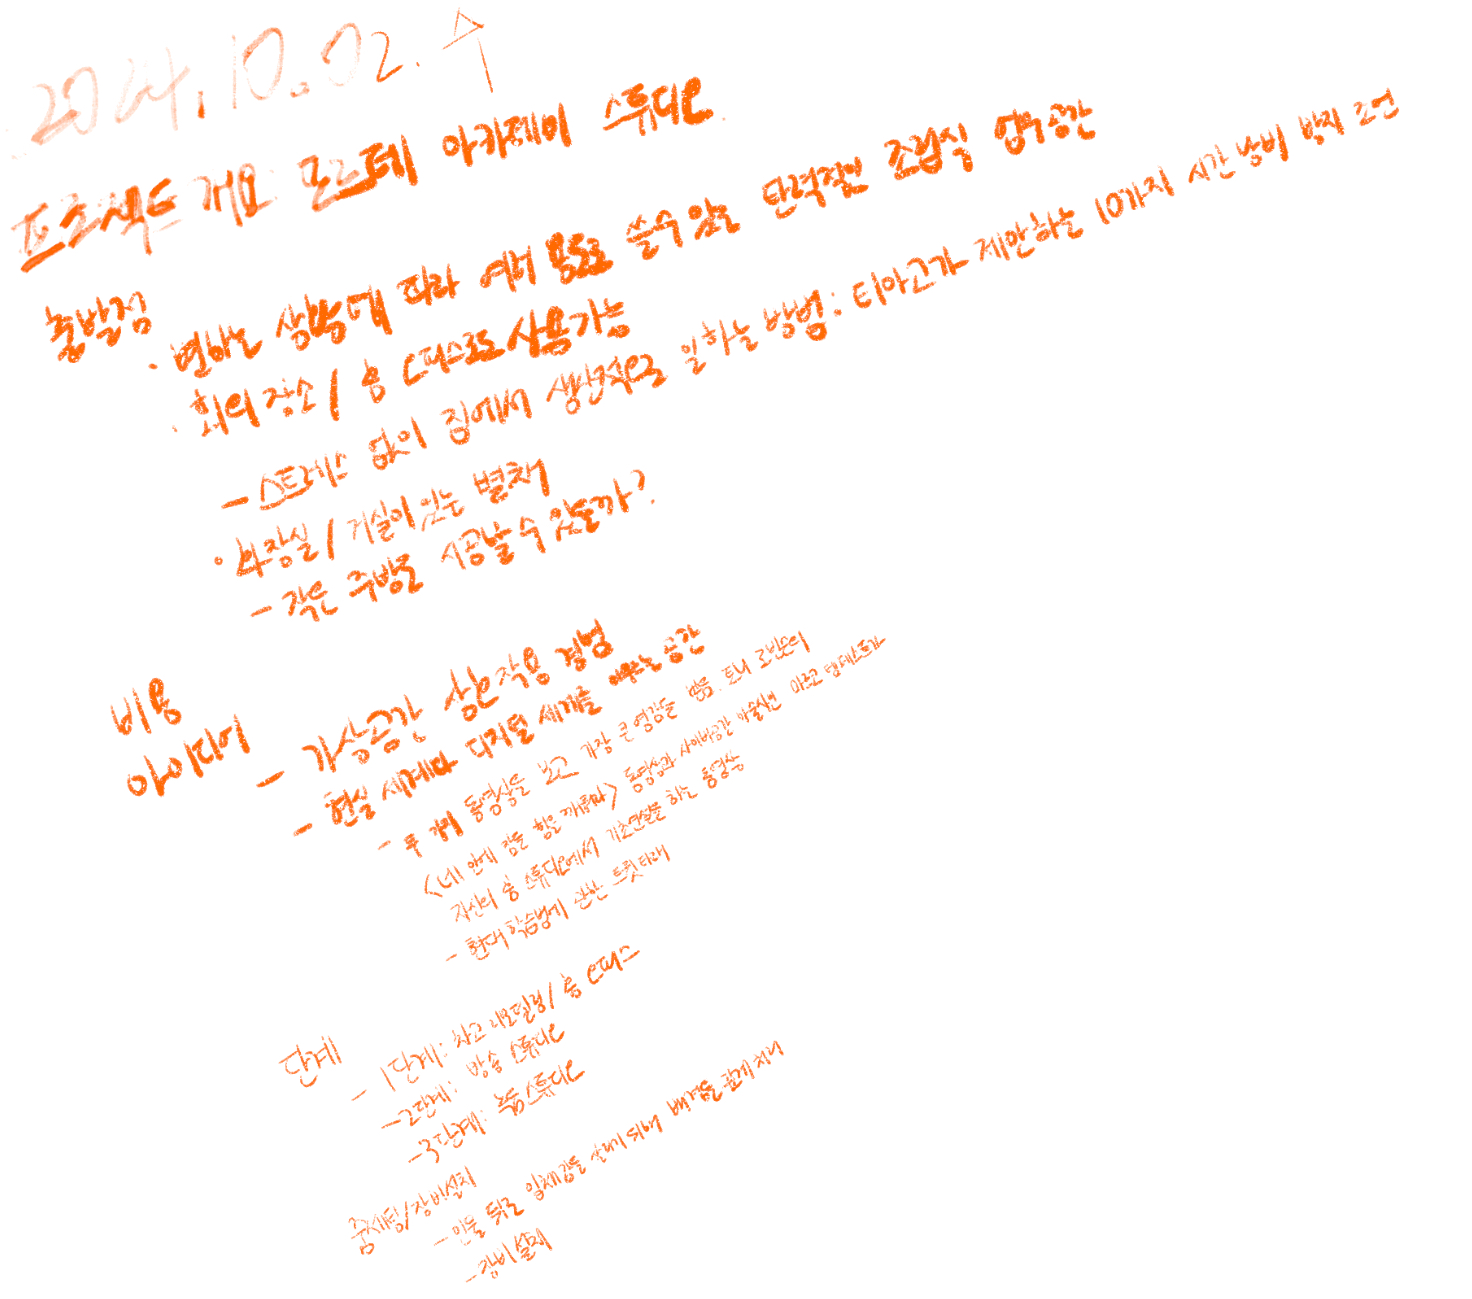 2024.10.02. 수
프로젝트 개요: 포르테 아카데미 스튜디오
출발점
· 변하는 상황에 따라 여러 용도로 쓸 수 있는 탄력적인 조립식 업무공간
· 회의 장소 / 홈 오피스로도 사용가능
- 스트레스 없이 집에서 생산적으로 일하는 방법: 티아고가 제안하는 10가지 시간 낭비 방지 조언
· 화장실 / 거실이 있는 별채
- 작은 주방은 시공할 수 있을까?
비용
아이디어
- 가상공간 상호작용 경험
- 현실 세계와 디지털 세계를 아우르는 공간
- 두 개의 동영상을 보고 가장 큰 영감을 받음. 토니 로빈스의
<네 안에 잠든 힘을 깨워라> 동영상과 사이버공간 마술사인 마르코 템페스트가
자신의 홈 스튜디오에서 기조연설을 하는 동영상
- 현대 학습법에 관한 트윗타래
단계
- 1단계: 차고 리모델링 / 홈 오피스
- 2단계: 방송 스튜디오
- 3단계: 녹음 스튜디오
줌 세팅 / 장비설치
- 인물 뒤로 입체감을 살리기 위해 배경을 흐리게 처리
- 장비 설치